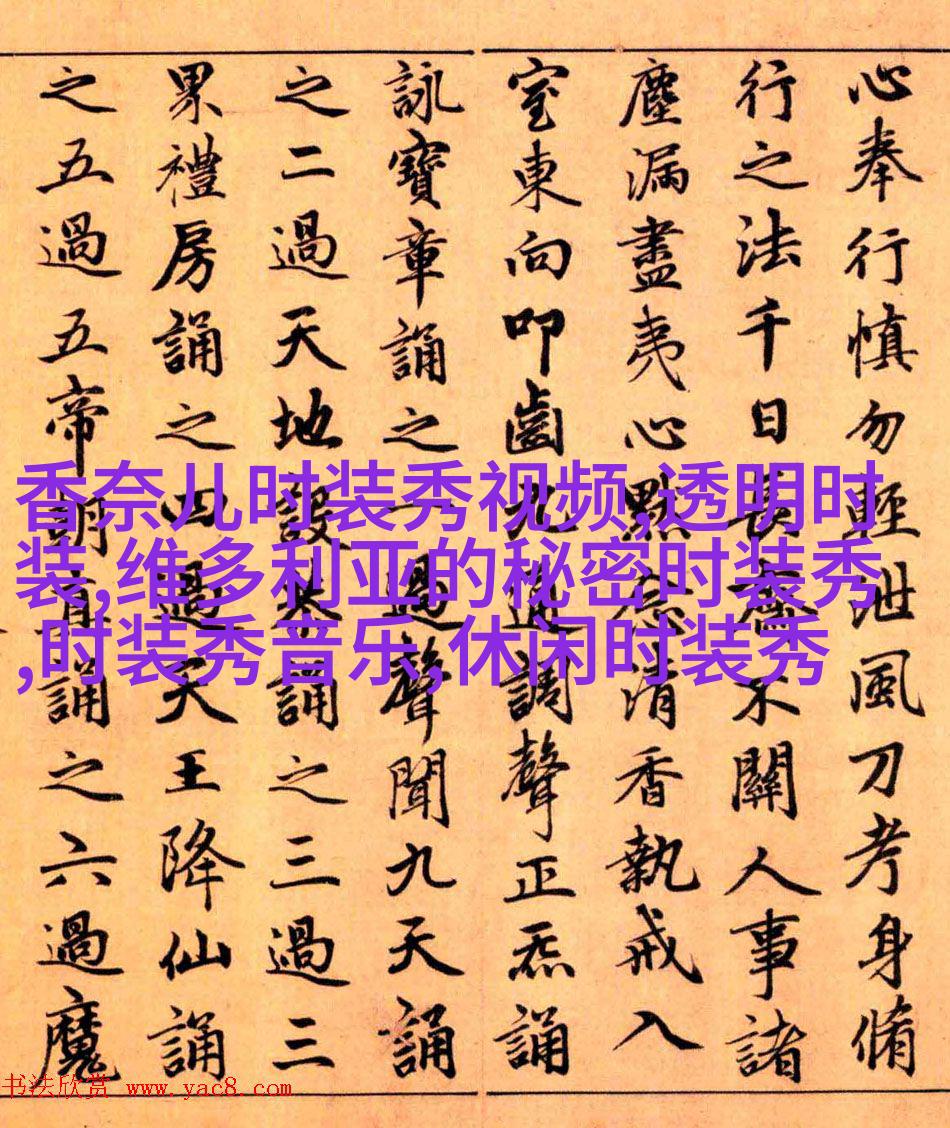 心奉行慎勿輕泄風刀考身脩
行之法千日長齋不關人事諸
塵漏盡夷心默念清香執戒入
室東向叩齒九通調聲正炁誦
詠寶章誦之一過聲聞九天誦
之二過天地設恭誦之三過三
界禮房誦之四過天王降仙誦
之五過五帝朝真誦之六過魔
香奈儿时装秀视频,透明时
装,维多利亚的秘密时装秀
,时装秀音乐,休闲时装秀
书法欣赏 www.yac8.com